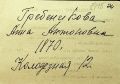 Гребенникова
Анна Антоновна
1870.
Колодезная 12.